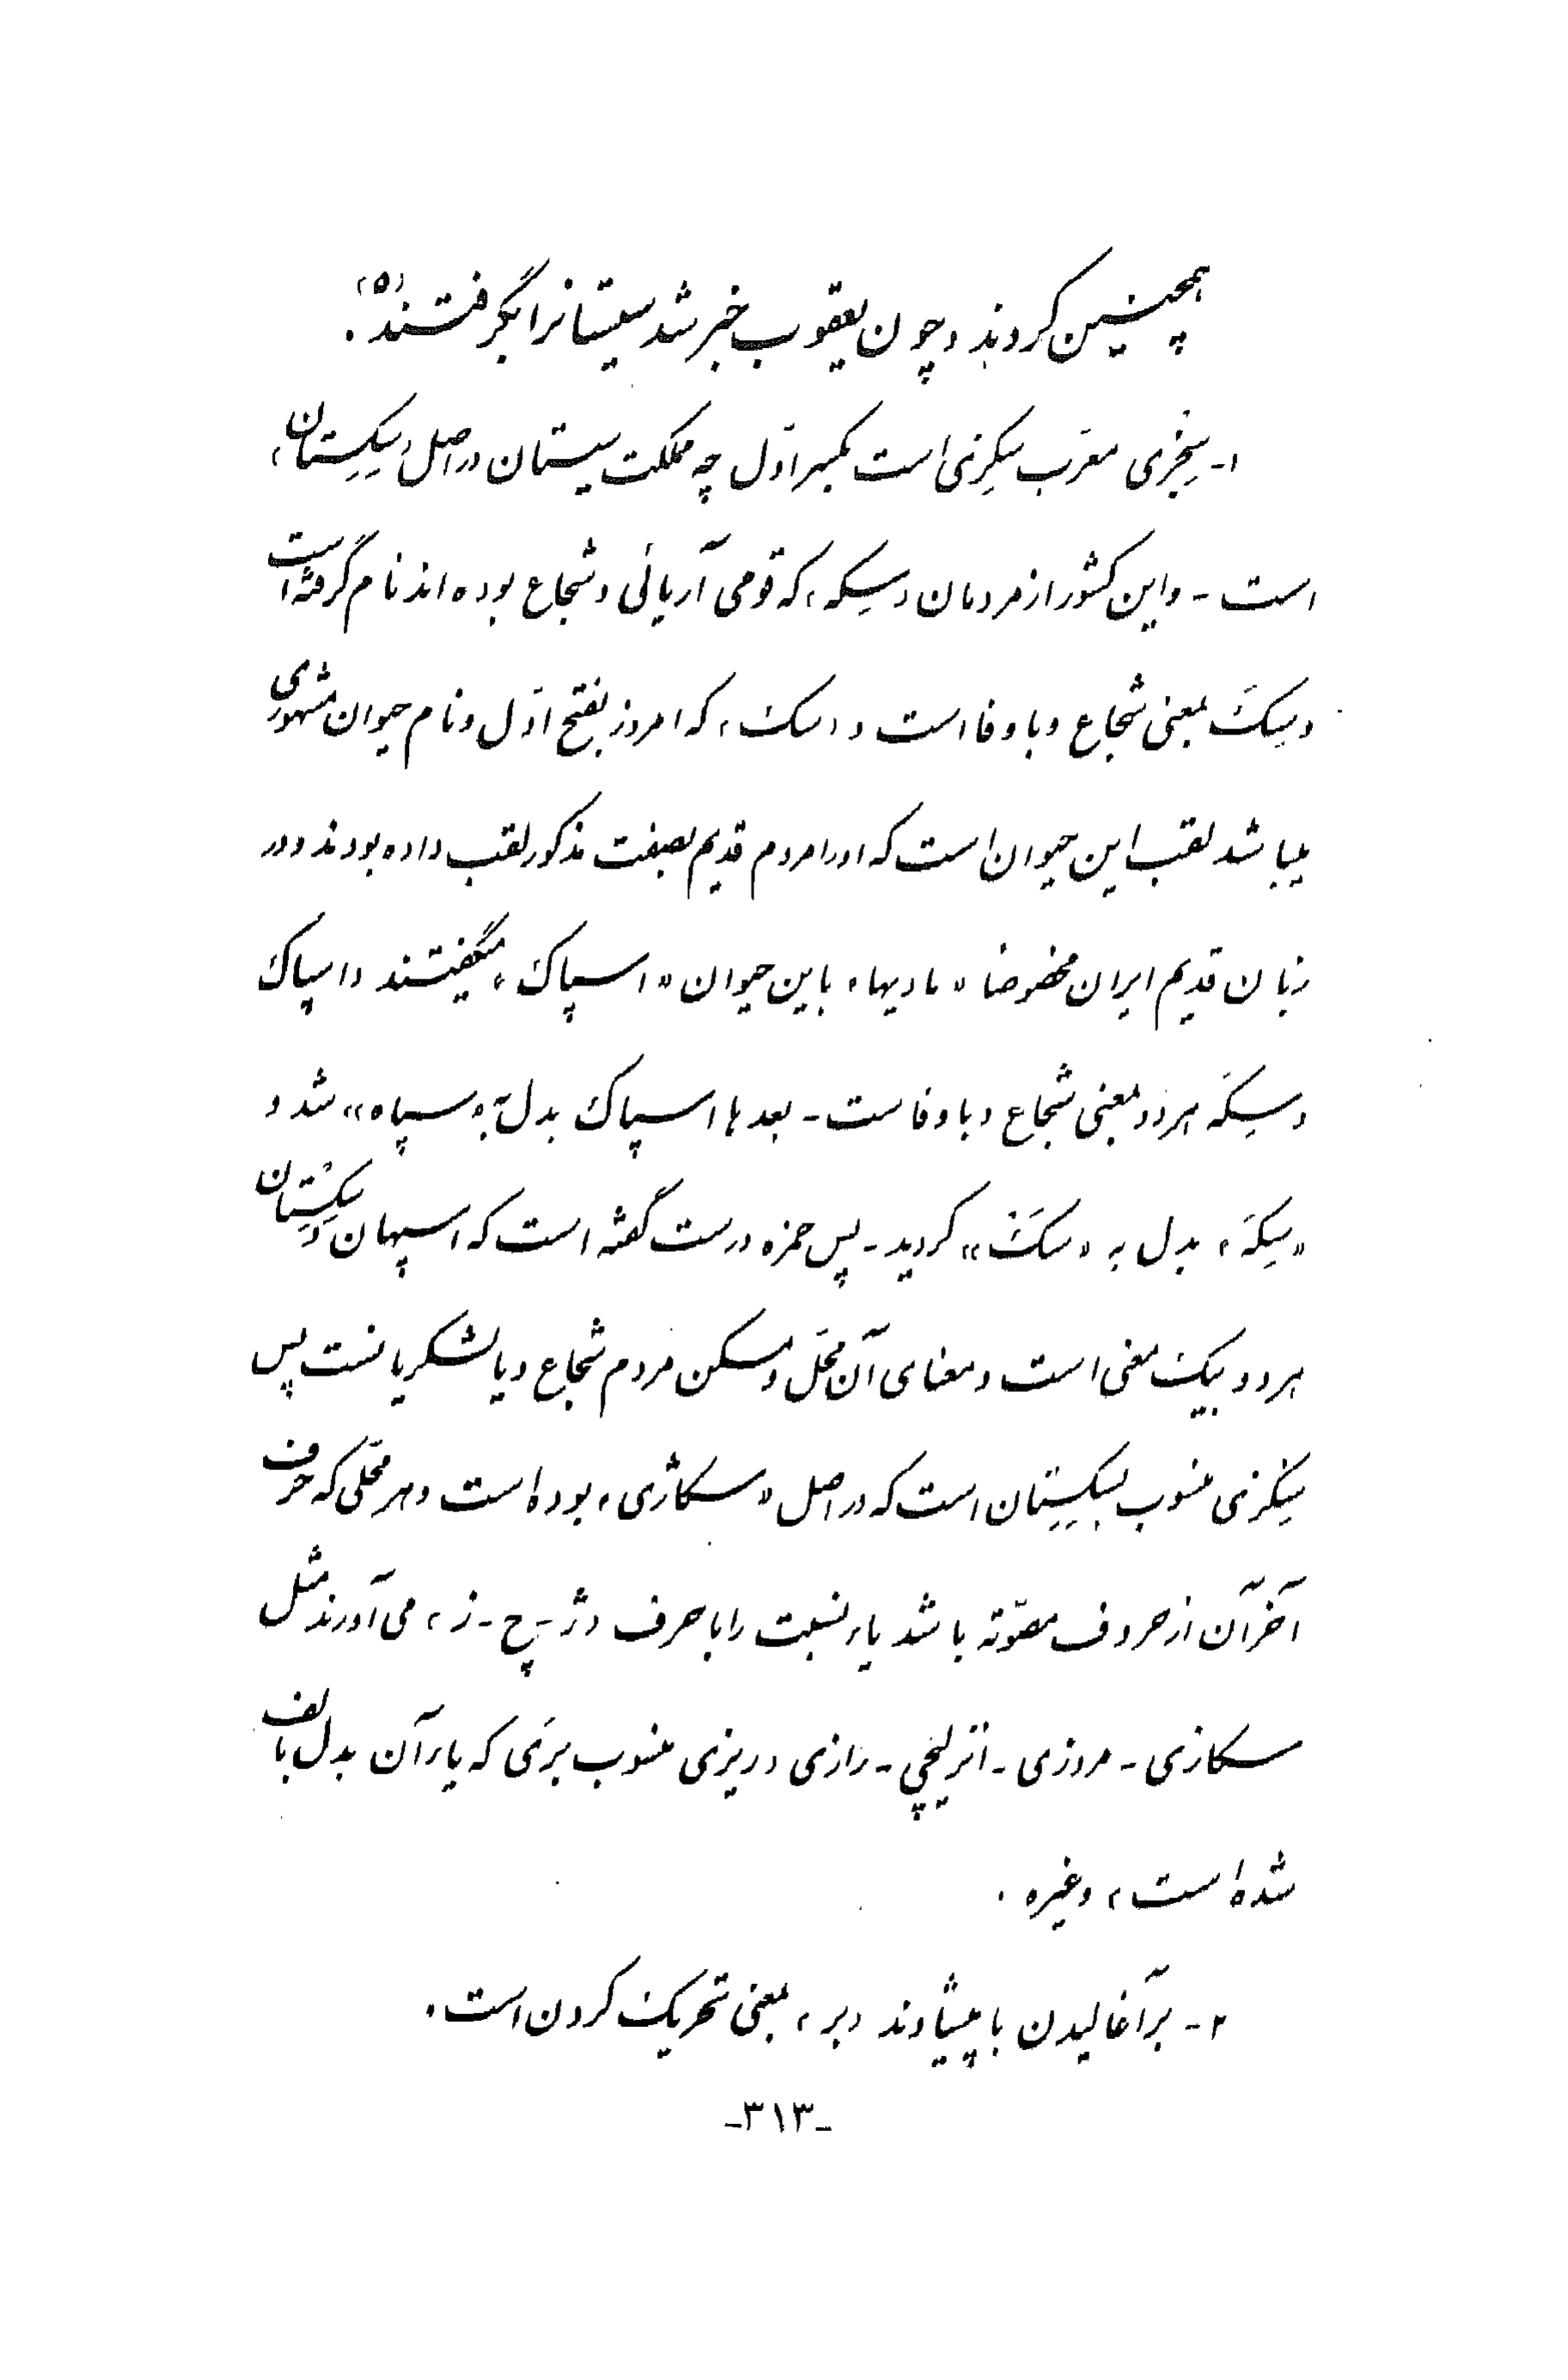 همچنین کردند و چون یعقوب خبر شد سیستانرا بگرفتند(۵).
۱- سِجزی معرّب سِکِزی است بکسر اوّل چه مملکت سیستان در اصل «سِکِستان»
است - و این کشور از مردمان «سِکه» که قومی آریائی و شجاع بوده‌اند نام گرفته است
و سِکَ بمعنی شجاع و باوفا است و «سک» که امروز بفتح اوّل و نام حیوان مشهوری
میباشد لقب این حیوان است که او را مردم قدیم بصفت مذکور لقب داده بودند و در
زبان قدیم ایران مخصوصا «مادیها» باین حیوان «اسپاک» میگفتند و اسپاک
و سِکَه هر دو بمعنی شجاع و باوفاست - بعدها اسپاک بدل به «سپاه» شد و
«سِکَه» بدل به «سَک» گردید - پس حمزه درست گفته است که اسپهان و سِکِستان
هر دو بیک معنی است و معنای آن محَل و مسکن مردم شجاع و یا لشکریانست پس
سِکِزی منسوب بسِکِستان است که در اصل «سکاژی» بوده است و هر محلّی که حرف
آخر آن از حروف مصوّته باشد یاء نسبت را با حرف «ژ - چ - ز» می‌آورند مثل
سکازی - مروزی - انزلیچی - رازی و ریزی منسوب بریَ که یاء آن بدل بالف
شده است» و غیره .
۲- برآغالیدن با پیشاوند «بر» بمعنی تحریک کردن است.
-۳۱۳-